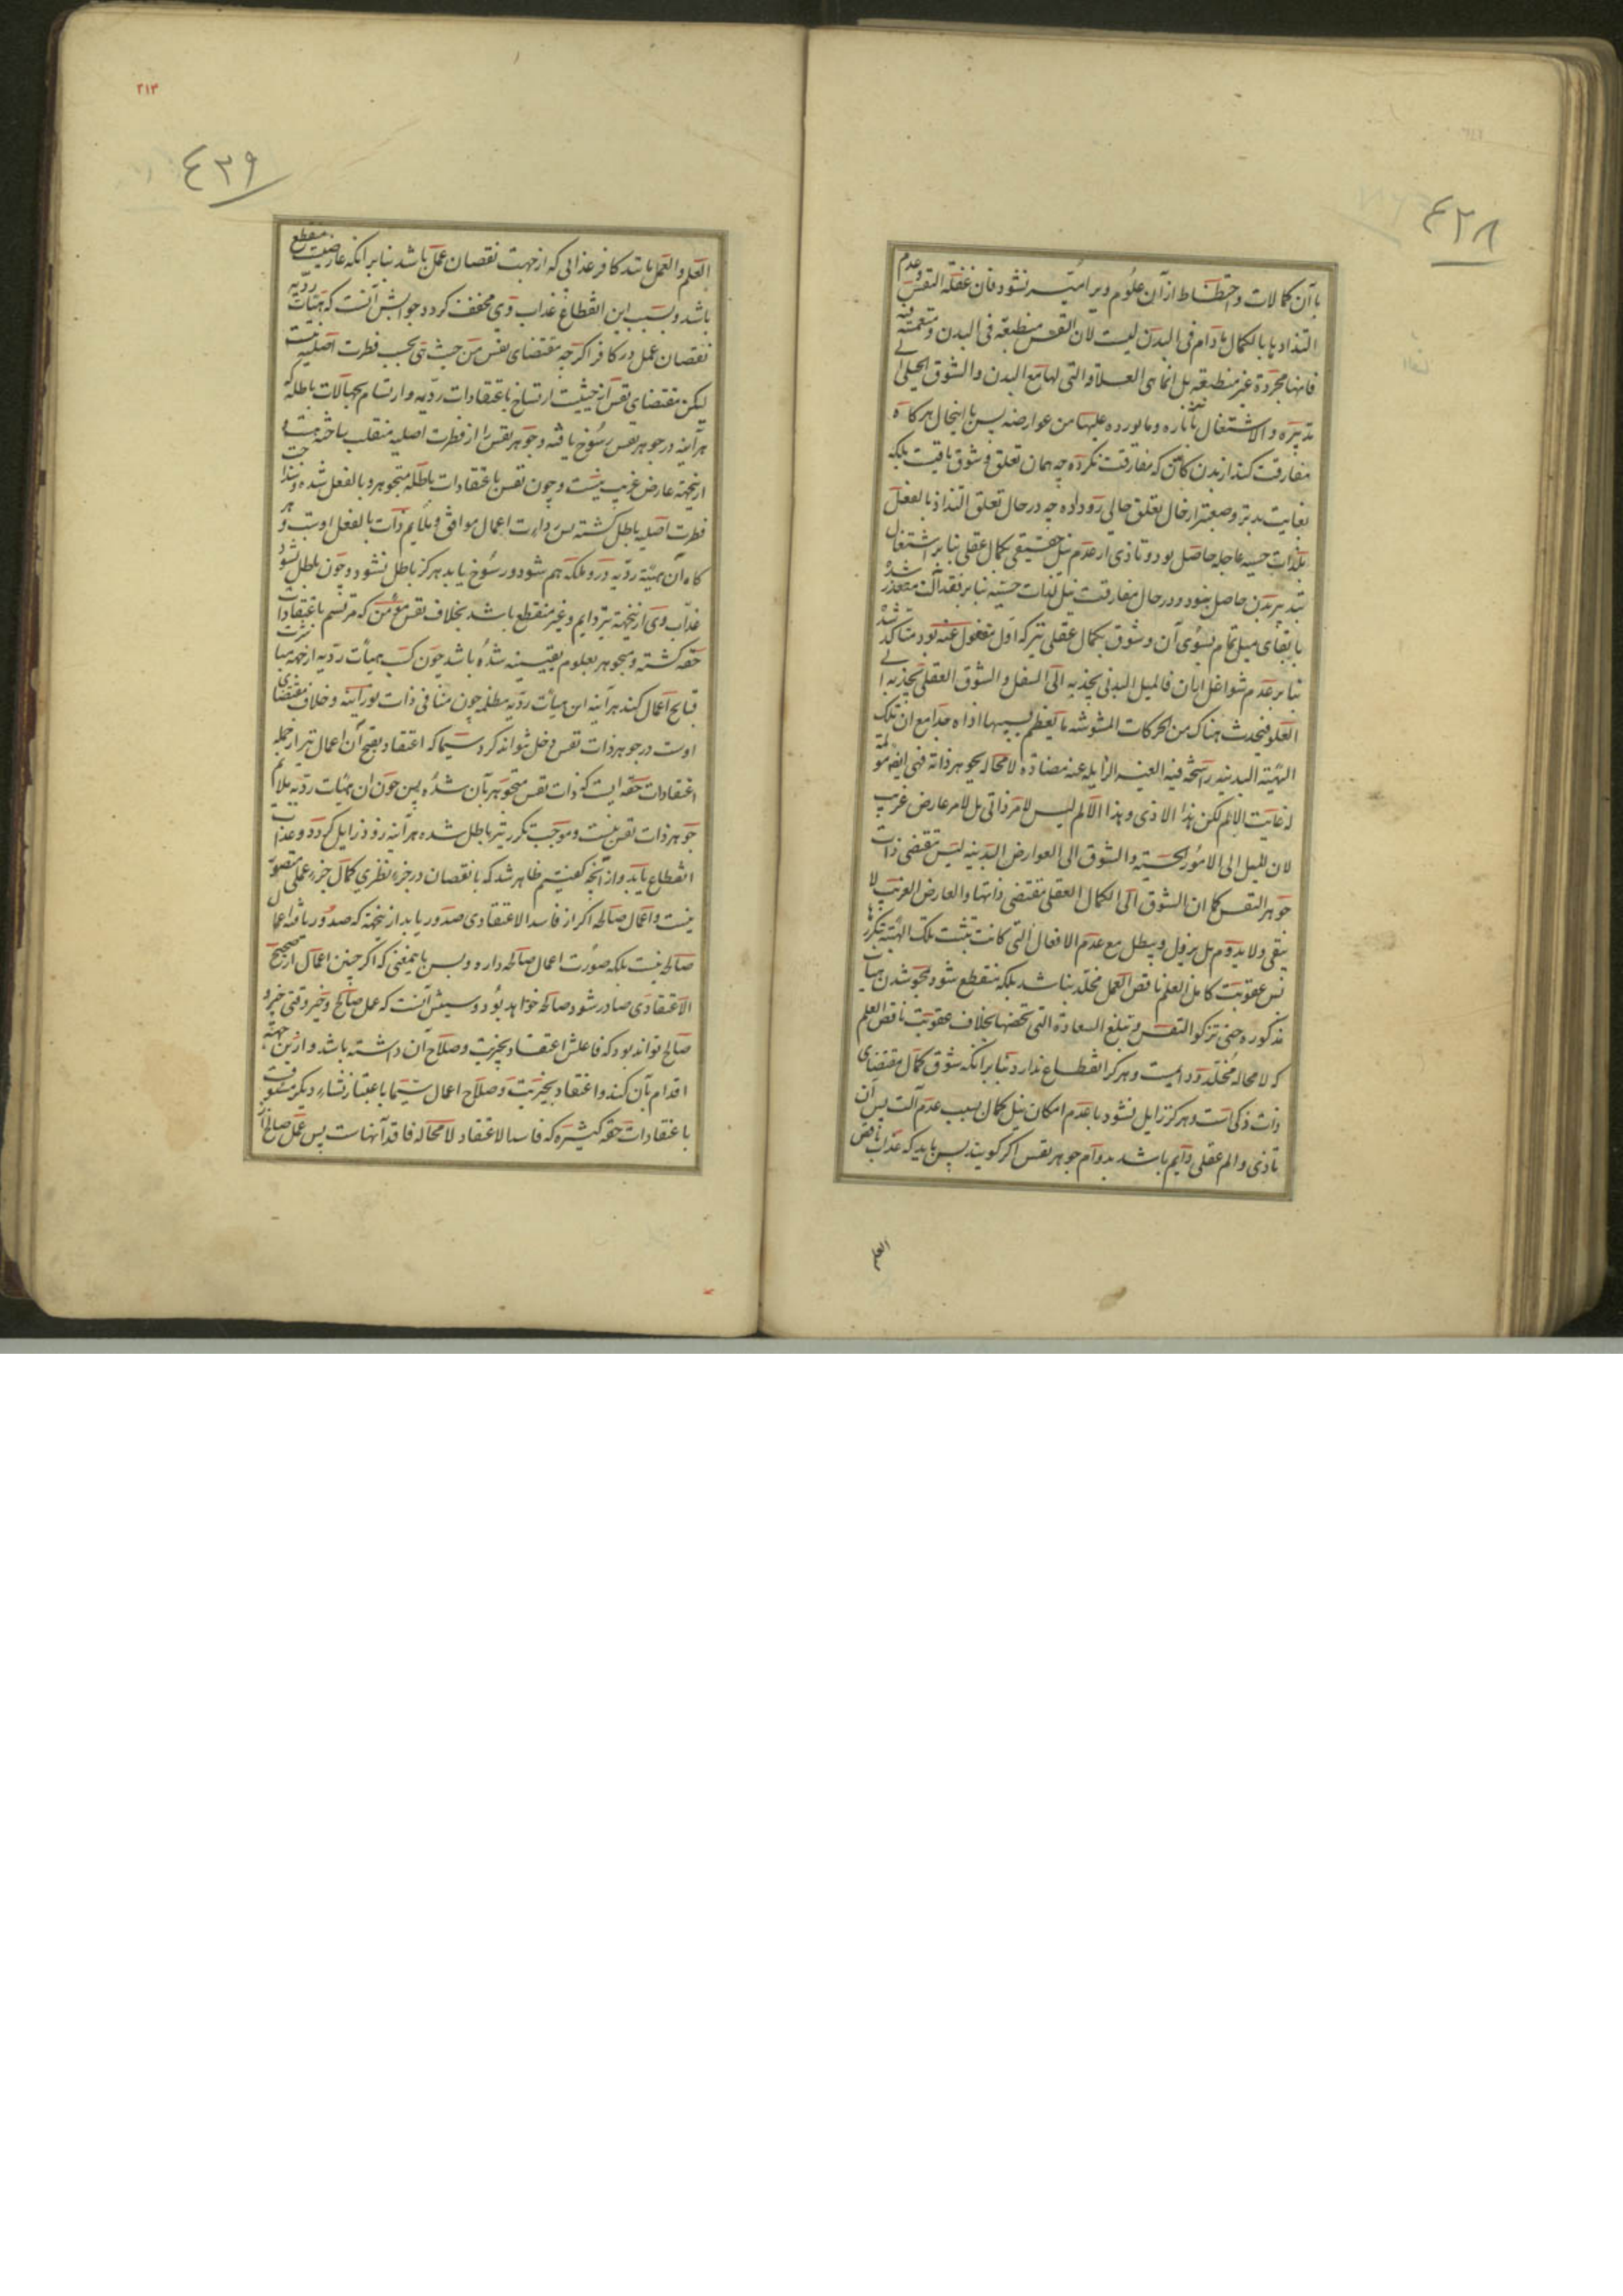 ٤٢٨
با آن کمالات و احتظاظ از آن علوم ویرا میسر نشود فان غفلة النفس و عدم
التذاذها بالکمال مادام فی البدن لیست لان النفس منطبعة فی البدن و منغمسة فیه
فانها مجردة غیر منطبعة بل انما هی العلاقة التی لها مع البدن و الشوق الجبلی الی
تدبیره و الاشتغال بآثاره و ما یورده علیها من عوارضه پس با اینحال هر کاه
مفارقت کند از بدن کانّ که مفارقت نکرده چه همان تعلق و شوق باقیست بلکه
بغایت بدتر و صعبتر از حال تعلق حالی رو داده چه در حال تعلق التذاذ بالفعل
بلذات حسیه عاجله حاصل بود و تاذی از عدم نیل حقیقی بکمال عقلی بنابر اشتغال
بتدبیر بدن حاصل نبود و در حال مفارقت نیل لذات حسیه بنابر فقد آلت متعذر شده
با بقای میل تمام بسوی آن و شوق بکمال عقلی نیز که اول مغفول عنه بود متاکد شد
بنابر عدم شواغل ابدان فالمیل البدنی یجذبه الی السفل و الشوق العقلی یجذبه الی
العلو فتحدث هناک من الحرکات المشوشة ما یعظم بسببها اذاه جدا مع ان تلک
الهیئة البدنیة راسخة فیه الغیر الزایلة عنه مضادة لا محاله بجوهر ذاته فهی ایضا مولمة
له غایت الالم لکن هذا الاذی و هذا الالم لیس لامر ذاتی بل لامر عارض غریب
لان المیل الی الامور الحسیة و الشوق الی العوارض البدنیه لیس مقتضی ذات
جوهر النفس کما ان الشوق الی الکمال العقلی مقتضی ذاتها و العارض الغریب لا
یبقی و لا یدوم بل یزول و یبطل مع عدم الافعال التی کانت تثبت تلک الهیئة بتکررها
پس عقوبت کامل العلم ناقص العمل مخلد نباشد بلکه منقطع شود بمحو شدن هیات
مذکوره حتی تزکو النفس و تبلغ السعادة التی تخصها بخلاف عقوبت ناقص العلم
که لا محاله مخلد و دایمست و هرکز انقطاع ندارد بنابر آنکه شوق بکمال مقتضای
ذات ذکی است و هرکز زایل نشود با عدم امکان نیل کمال بسبب عدم آلت پس آن
تاذی و الم عقلی دایم باشد بدوام جوهر نفس اکر کویند پس باید که عذاب ناقص
العلم
٢١٣
٤٢٩
العلم و العمل باشد کافر عذابی که از جهت نقصان عمل باشد بنابر آنکه عارضیست منقطع
باشد و بسبب این انقطاع عذاب وی مخفف کردد جوابش آنست که هیآت ردیه
نقصان عمل در کافر اکرچه مقتضای نفس من حیث هی بحسب فطرت اصلیه نیست
لیکن مقتضای نفس از حیثیت ارتساخ باعتقادات ردیه و ارتسام بجهالات باطله که
هرآینه در جوهر نفس رسوخ یافته و جوهر نفس را از فطرت اصلیه منقلب ساخته هست و
ازینجهة عارض غریب نیست و چون نفس باعتقادات باطله متجوهر و بالفعل شده و
فطرت اصلیه باطل کشته پس رداءت اعمال موافق و ملایم ذات بالفعل اوست و هر
کاه آن هیئة ردیه در و ملکه هم شود و رسوخ یابد هرکز باطل نشود و چون باطل نشود
عذاب وی ازینجهة نیز دایم و غیر منقطع باشد بخلاف نفس مؤمن که مرتسم باعتقادات
حقه کشته و متجوهر بعلوم یقینیه شده باشد چون کسب هیأت ردیه از جهة مباشرت
قبایح اعمال کند هرآینه این هیأت ردیه مظلمه چون منافی ذات نورانیه و خلاف مقتضای
اوست در جوهر ذات نفس دخل نتواند کرد سیما که اعتقاد بقبح آن اعمال نیز از جمله
اعتقادات حقه ایست که ذات نفس متجوهر بآن شده پس چون آن هیئات ردیه ملایم
جوهر ذات نفس نیست و موجب تکرر نیز باطل شده هرآینه زود زایل کردد و عذاب
انقطاع یابد و از آنچه کفتیم ظاهر شد که با نقصان در جزء نظری کمال جزء عملی متصور
نیست و اعمال صالحه اکر از فاسد الاعتقادی صدور یابد ازینجهة که صدور یافته اعمال
صالحه نیست بلکه صورت اعمال صالحه دارد و بس باینمعنی که اکر چنین اعمال از صحیح
الاعتقادی صادر شود صالحه خواهد بود و سببش آنست که عمل صالح و خیر وقتی خیر و
صالح تواند بود که فاعلش اعتقاد بخیریت و صلاح آن داشته باشد و ازین جهة
اقدام بآن کند و اعتقاد بخیریت و صلاح اعمال سیما باعتبار نشاء دیکر مسبوقست
باعتقادات حقه کثیره که فاسد الاعتقاد لا محاله فاقد آنهاست پس عمل صالح از